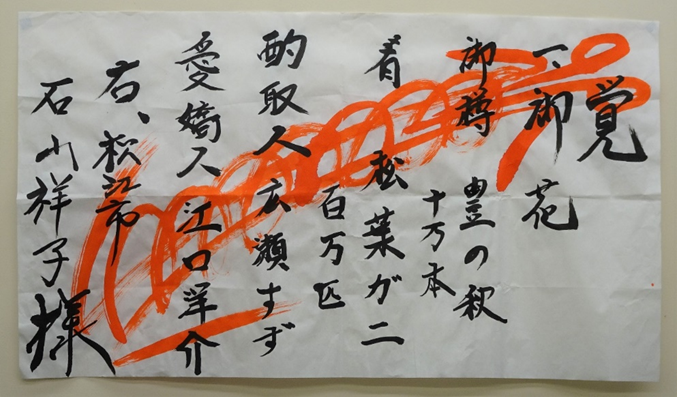 覚
一、御花
御樽 豊の秋
十万本
肴 松葉ガニ
百万匹
酌取人 広瀬すず
愛嬌人 江口洋介
右、松江市
石山祥子様